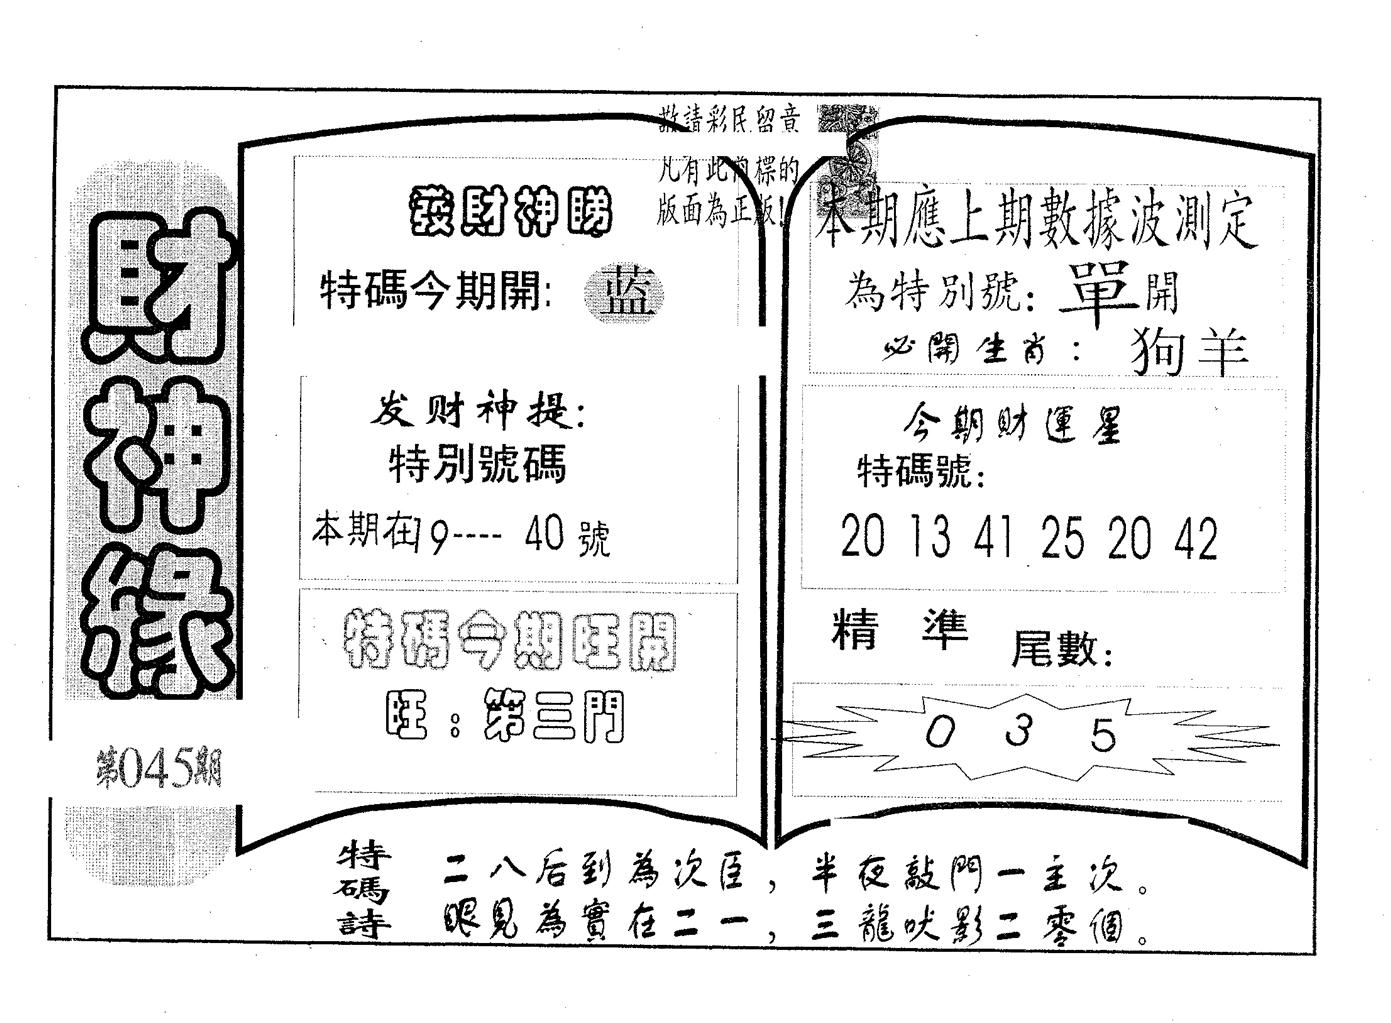 財神緣
第045期
敬請彩民留意
凡有此內標的
版面為正版!
發財神睇
特碼今期開: 蓝
发财神提:
特別號碼
本期在19---- 40號
特碼今期旺開
旺:第三門
本期應上期數據波測定
為特別號: 單開
必開生肖: 狗羊
今期財運星
特碼號:
20 13 41 25 20 42
精準 尾數:
0 3 5
特碼詩
二八后到為次臣，半夜敲門一主次。
眼見為實在二一，三龍吠影二零個。